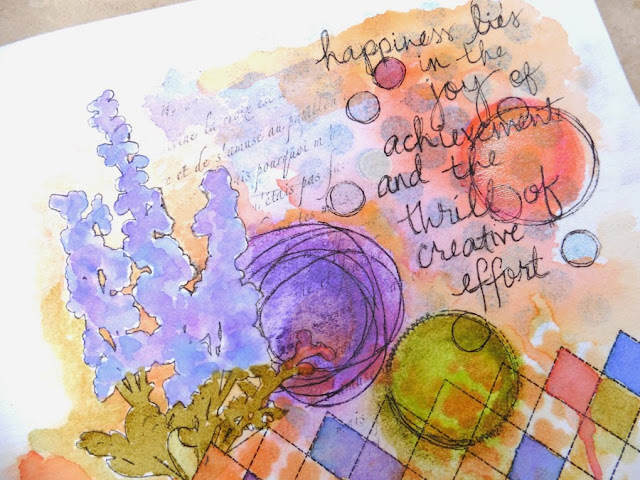 happiness lies
in the
joy of
achievement
and the
thrill of
creative
effort
la
et de s'amuse au
pourquoi m'
n'étais pas